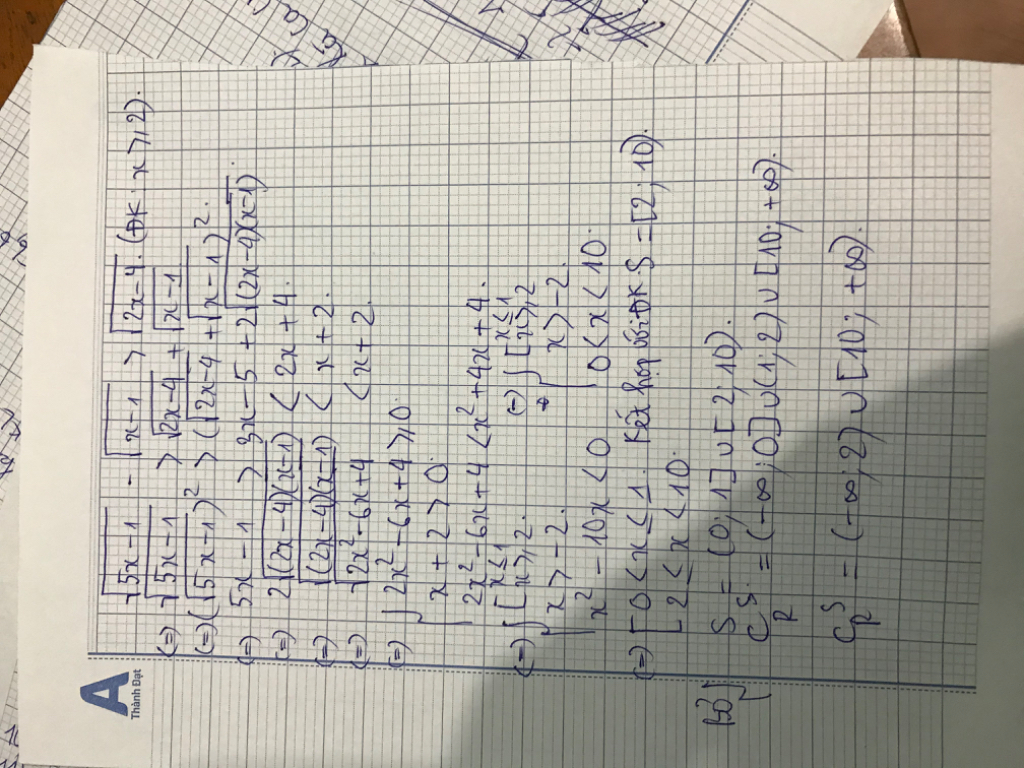 A
Thành Đạt
√5x-1 - √x-1 > √2x-4. (ĐK: x ≥ 2).
(=) √5x-1 > √2x-4 + √x-1
(=) (√5x-1)² > (√2x-4 + √x-1)².
(=) 5x-1 > 3x-5+2√(2x-4)(x-1)
(=) 2√(2x-4)(x-1) < 2x+4.
(=) √(2x-4)(x-1) < x+2.
(=) √2x²-6x+4 < x+2
(=) { 2x²-6x+4 ≥ 0.
x+2 > 0.
2x²-6x+4 < x²+4x+4.
(=) { [ x ≤ 1
x ≥ 2.
x > -2.
x² - 10x < 0
(=) { [ x ≤ 1
x ≥ 2
x > -2.
0 < x < 10.
(=) [ 0 < x ≤ 1.
2 ≤ x < 10.
Kết hợp với ĐK S = [2; 10).
Bỏ] S = (0; 1] ∪ [2; 10).
C S = (-∞; 0] ∪ (1; 2) ∪ [10; +∞).
R
C S = (-∞; 2) ∪ [10; +∞).
R